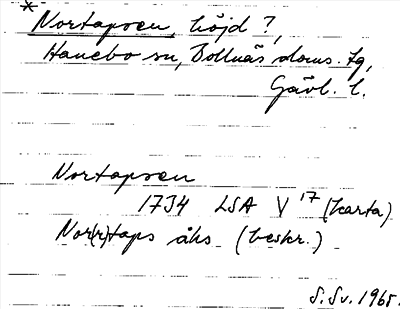 * Nortapsen, höjd ?,
Hanebo sn, Bollnäs doms. tg,
Gävl. l.
Nortapsen
1734 LSA V 17 (karta)
Nor(r)taps åhs (beskr.)
S. Sv. 1965.